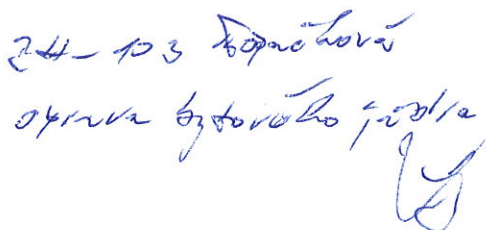 ZH-103 Kopáčková
oprava bytového jádra